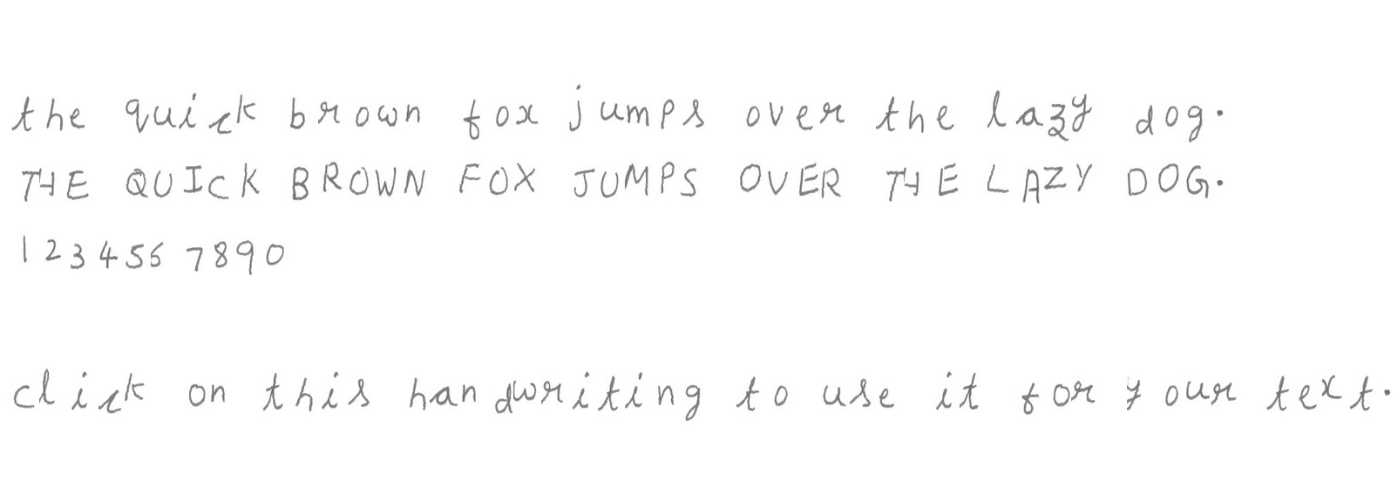 the quick brown fox jumps over the lazy dog.
THE QUICK BROWN FOX JUMPS OVER THE LAZY DOG.
1234567890
click on this handwriting to use it for your text.